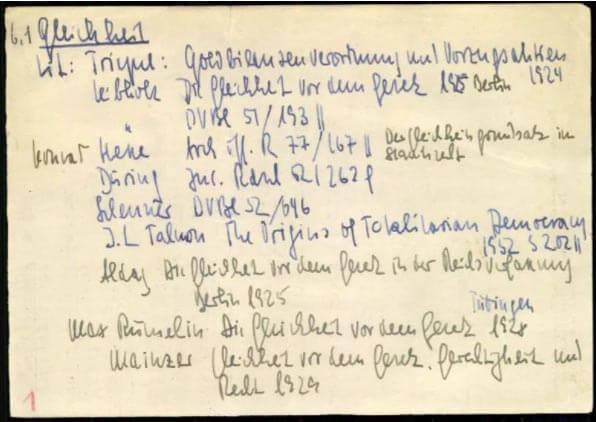 6,1 Gleichheit
Lit: Triepel: Goldbilanzenverordnung und Vorzugsaktien 1924
Leibholz Die Gleichheit vor dem Gesetz 1925 Berlin
" DVBl 51/193 ||
Konrad Hesse Arch öff. R 77/167 || Der Gleichheitsgrundsatz im Staatsrecht
Düring Jur. Rdsch 52/262 f
Scheuner DVBl 52/646
J.L Talmon The Origins of Totalitarian Democracy
1952 S 202 ||
Aldag Die Gleichheit vor dem Gesetz in der Reichsverfassung
Berlin 1925
Max Rümelin Die Gleichheit vor dem Gesetz Tübingen 1928
Mainzer Gleichheit vor dem Gesetz. Gerechtigkeit und
Recht 1929
1